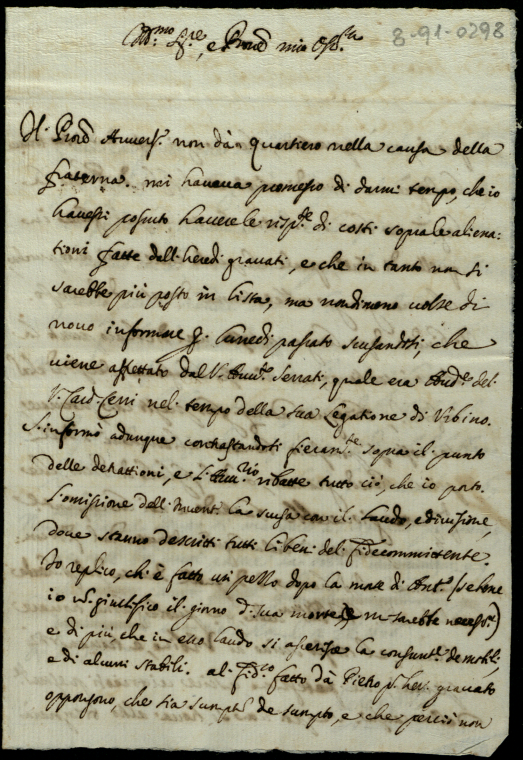 8-91-0298
Ill.mo Sig.re, e Pron mio Oss.mo
Il Pron Avvers.o non dà quartiero nella causa della
fraterna. mi haveva promesso di darmi tempo, che io
havessi possuto havere le risp.te di costì sopra le aliena-
tioni fatte dall'heredi gravati, e che in tanto non si
sarebbe più posto in lista, ma nondimeno volse di
novo informare p. lunedì passato scusandosi, che
viene affrettato dal S. Avv.o Serrati, quale era Aud.re del
S. Card. Cerri nel tempo della sua Legatione di Urbino.
S'informò adunque contrastandosi fieram.te sopra il punto
delle detrattioni, e ribatte tutto ciò, che io porto.
L'omissione dell'Inventi la scusa con il laudo, e divisione,
dove stanno descritti tutti li beni del fidecommittente.
Io replico, che è fatto un pezzo dopo la morte di Ant.o (se bene
io giustifico il giorno di sua morte, e m sarebbe necess.o)
e di più che in esso laudo si asserisce la consunt.e de mobili,
e di alcuni stabili. al fid.co fatto da Pietro p. her. gravato
oppongono, che sia sumpt. de sumpto, e che perciò non